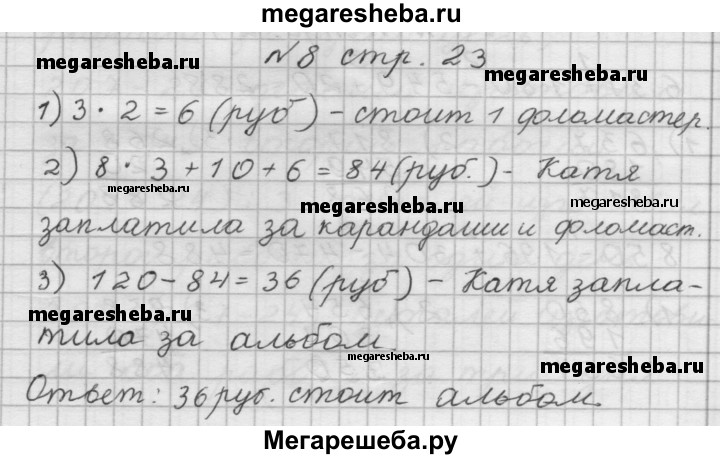 megaresheba.ru
№8 стр. 23
megaresheba.ru
megaresheba.ru
1) 3 · 2 = 6 (руб) - стоит 1 фломастер.
2) 8 · 3 + 10 + 6 = 84 (руб.) - Катя
megaresheba.ru
megaresheba.ru
megaresheba.ru
заплатила за карандаши и фломаст.
3) 120 - 84 = 36 (руб) - Катя запла-
megaresheba.ru
тила за альбом.
megaresheba.ru
megaresheba.ru
Ответ: 36 руб. стоит альбом.
Мегарешеба.ру